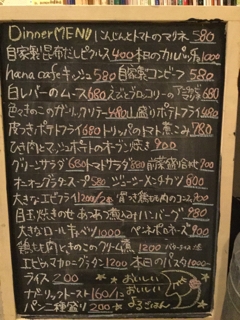 Dinner MENU にんじんとトマトのマリネ 580
自家製昆布だしピクルス 400 本日のカルパッチョ 1000
hana cafeキッシュ 580 自家製コンビーフ 580
白レバーのムース 680 えびとブロッコリーの
色々きのこのガーリックソテー 480 山盛りポテトフライ 480
皮つきポテトフライ 680 トリッパのトマト煮こみ 980
ひき肉とマッシュポテトのオーブン焼き 900
グリーンサラダ 680 トマトサラダ 880 前菜盛り合せ 900
オニオングラタンスープ 580 ジューシーメンチカツ
大きなエビフライ 1200
目玉焼きのせ あつあつ煮こみハンバーグ 980
大きなロールキャベツ 1000 ペンネボロネーズ 900
鶏もも肉ときのこのクリーム煮 1200
エビとマカロニグラタン 1200 本日のパスタ 1000〜
ライス 200 おいしい
ガーリックトースト 160 おいしい
パン二種盛り 200 よるごはん